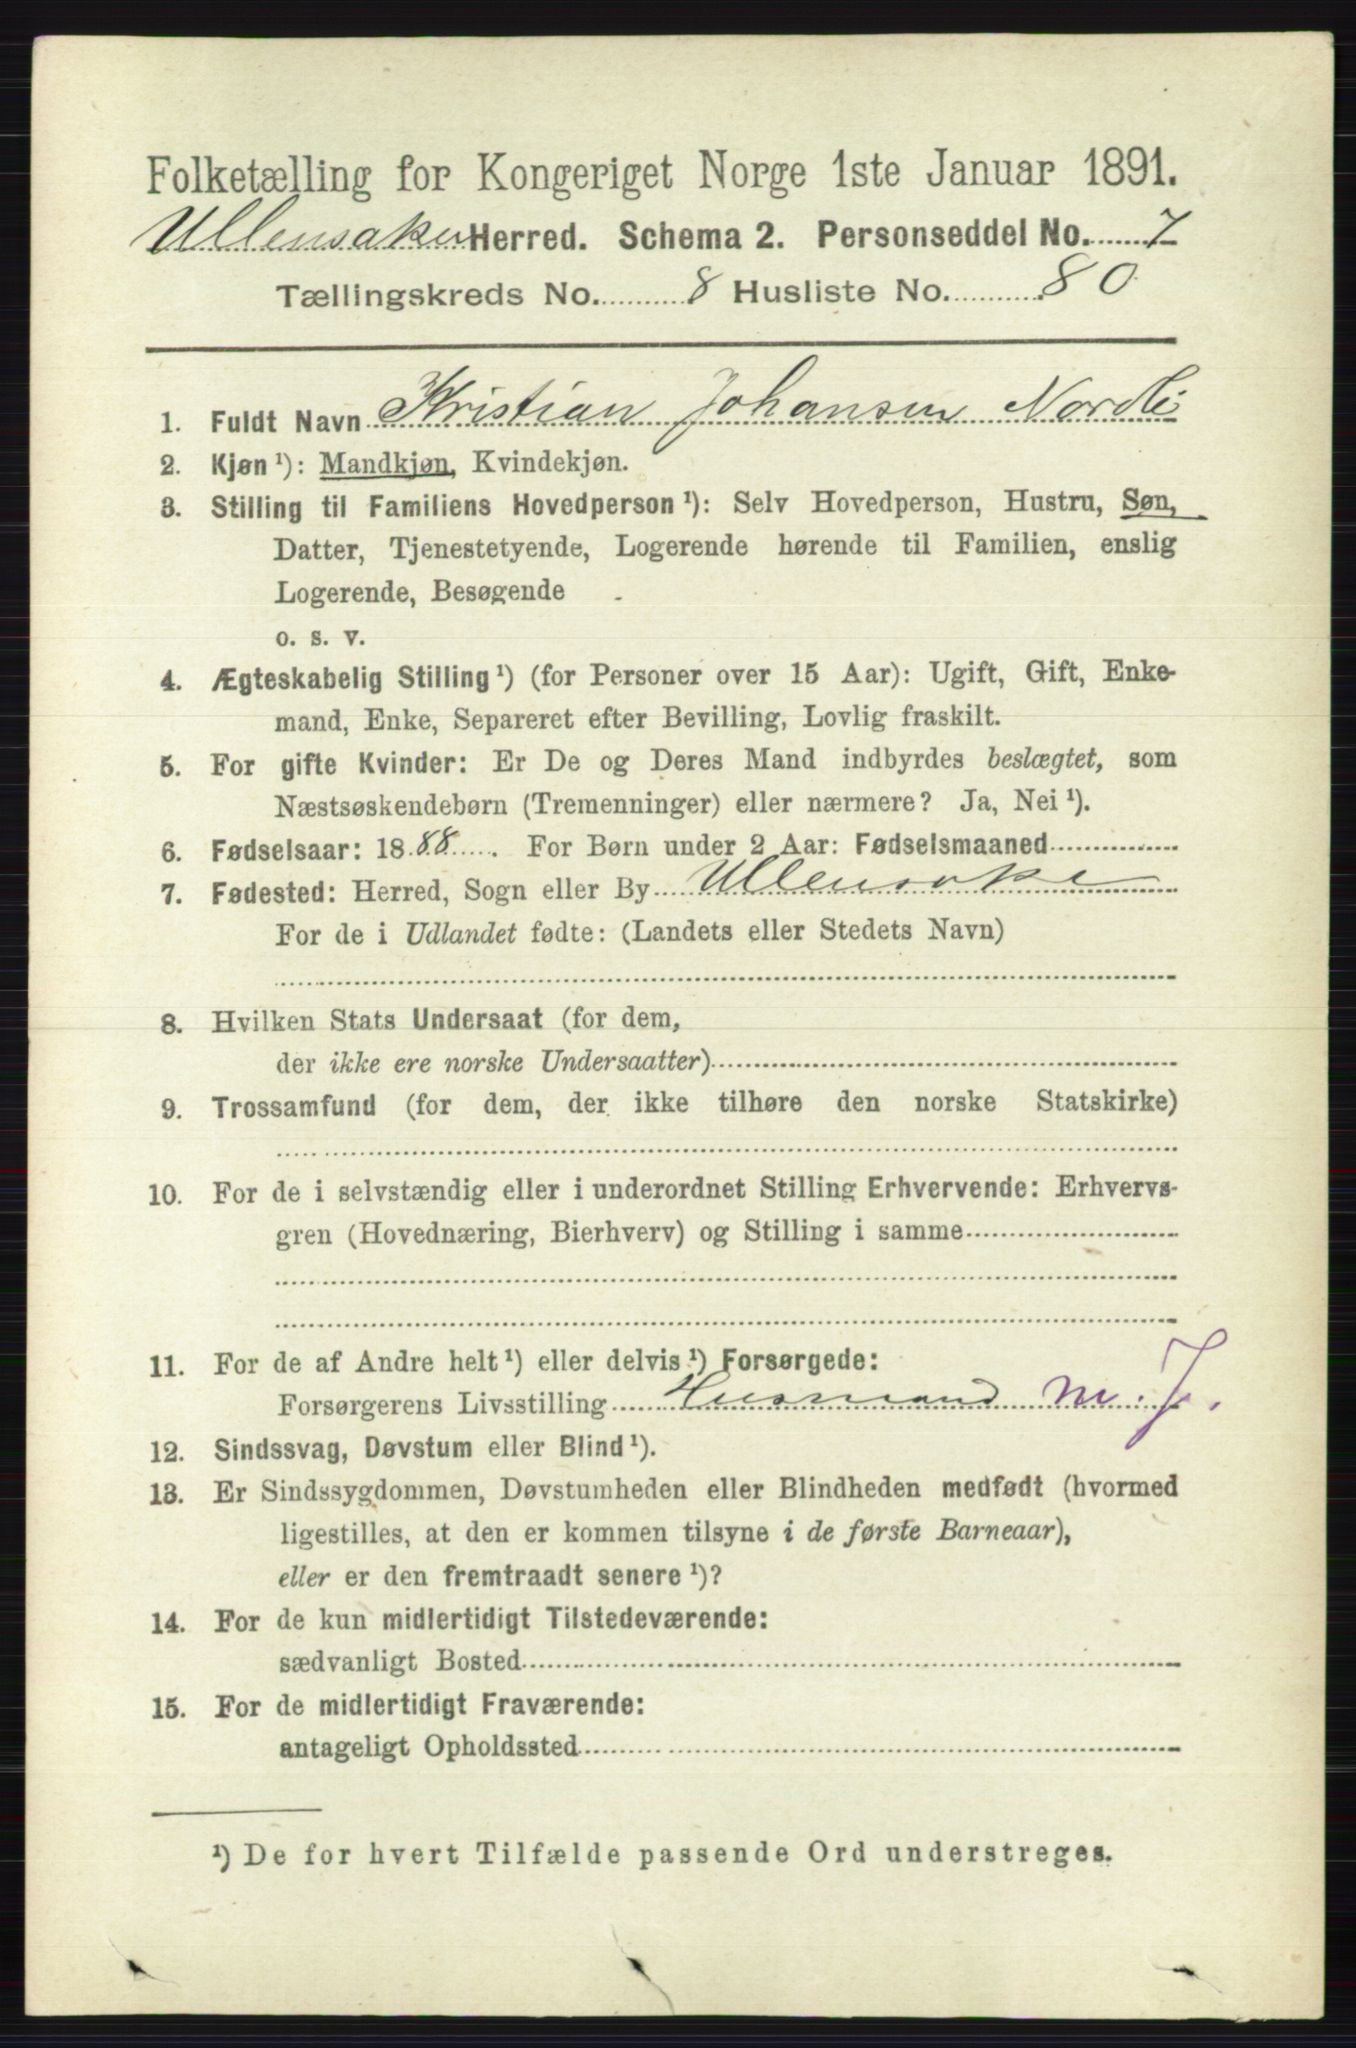 Folketælling for Kongeriget Norge 1ste Januar 1891.
Ullensaker Herred. Schema 2. Personseddel No. 7
Tællingskreds No. 8 Husliste No. 80
1. Fuldt Navn Kristian Johansen Nordli
2. Kjøn ¹): Mandkjøn, Kvindekjøn.
3. Stilling til Familiens Hovedperson ¹): Selv Hovedperson, Hustru, Søn,
Datter, Tjenestetyende, Logerende hørende til Familien, enslig
Logerende, Besøgende
o. s. v.
4. Ægteskabelig Stilling ¹) (for Personer over 15 Aar): Ugift, Gift, Enke-
mand, Enke, Separeret efter Bevilling, Lovlig fraskilt.
5. For gifte Kvinder: Er De og Deres Mand indbyrdes beslægtet, som
Næstsøskendebørn (Tremenninger) eller nærmere? Ja, Nei ¹).
6. Fødselsaar: 1888. For Børn under 2 Aar: Fødselsmaaned
7. Fødested: Herred, Sogn eller By Ullensake
For de i Udlandet fødte: (Landets eller Stedets Navn)
8. Hvilken Stats Undersaat (for dem,
der ikke ere norske Undersaatter)
9. Trossamfund (for dem, der ikke tilhøre den norske Statskirke)
10. For de i selvstændig eller i underordnet Stilling Erhvervende: Erhvervs-
gren (Hovednæring, Bierhverv) og Stilling i samme
11. For de af Andre helt ¹) eller delvis ¹) Forsørgede:
Forsørgerens Livsstilling Husmand m. J.
12. Sindssvag, Døvstum eller Blind ¹).
13. Er Sindssygdommen, Døvstumheden eller Blindheden medfødt (hvormed
ligestilles, at den er kommen tilsyne i de første Barneaar),
eller er den fremtraadt senere ¹)?
14. For de kun midlertidigt Tilstedeværende:
sædvanligt Bosted
15. For de midlertidigt Fraværende:
antageligt Opholdssted
¹) De for hvert Tilfælde passende Ord understreges.